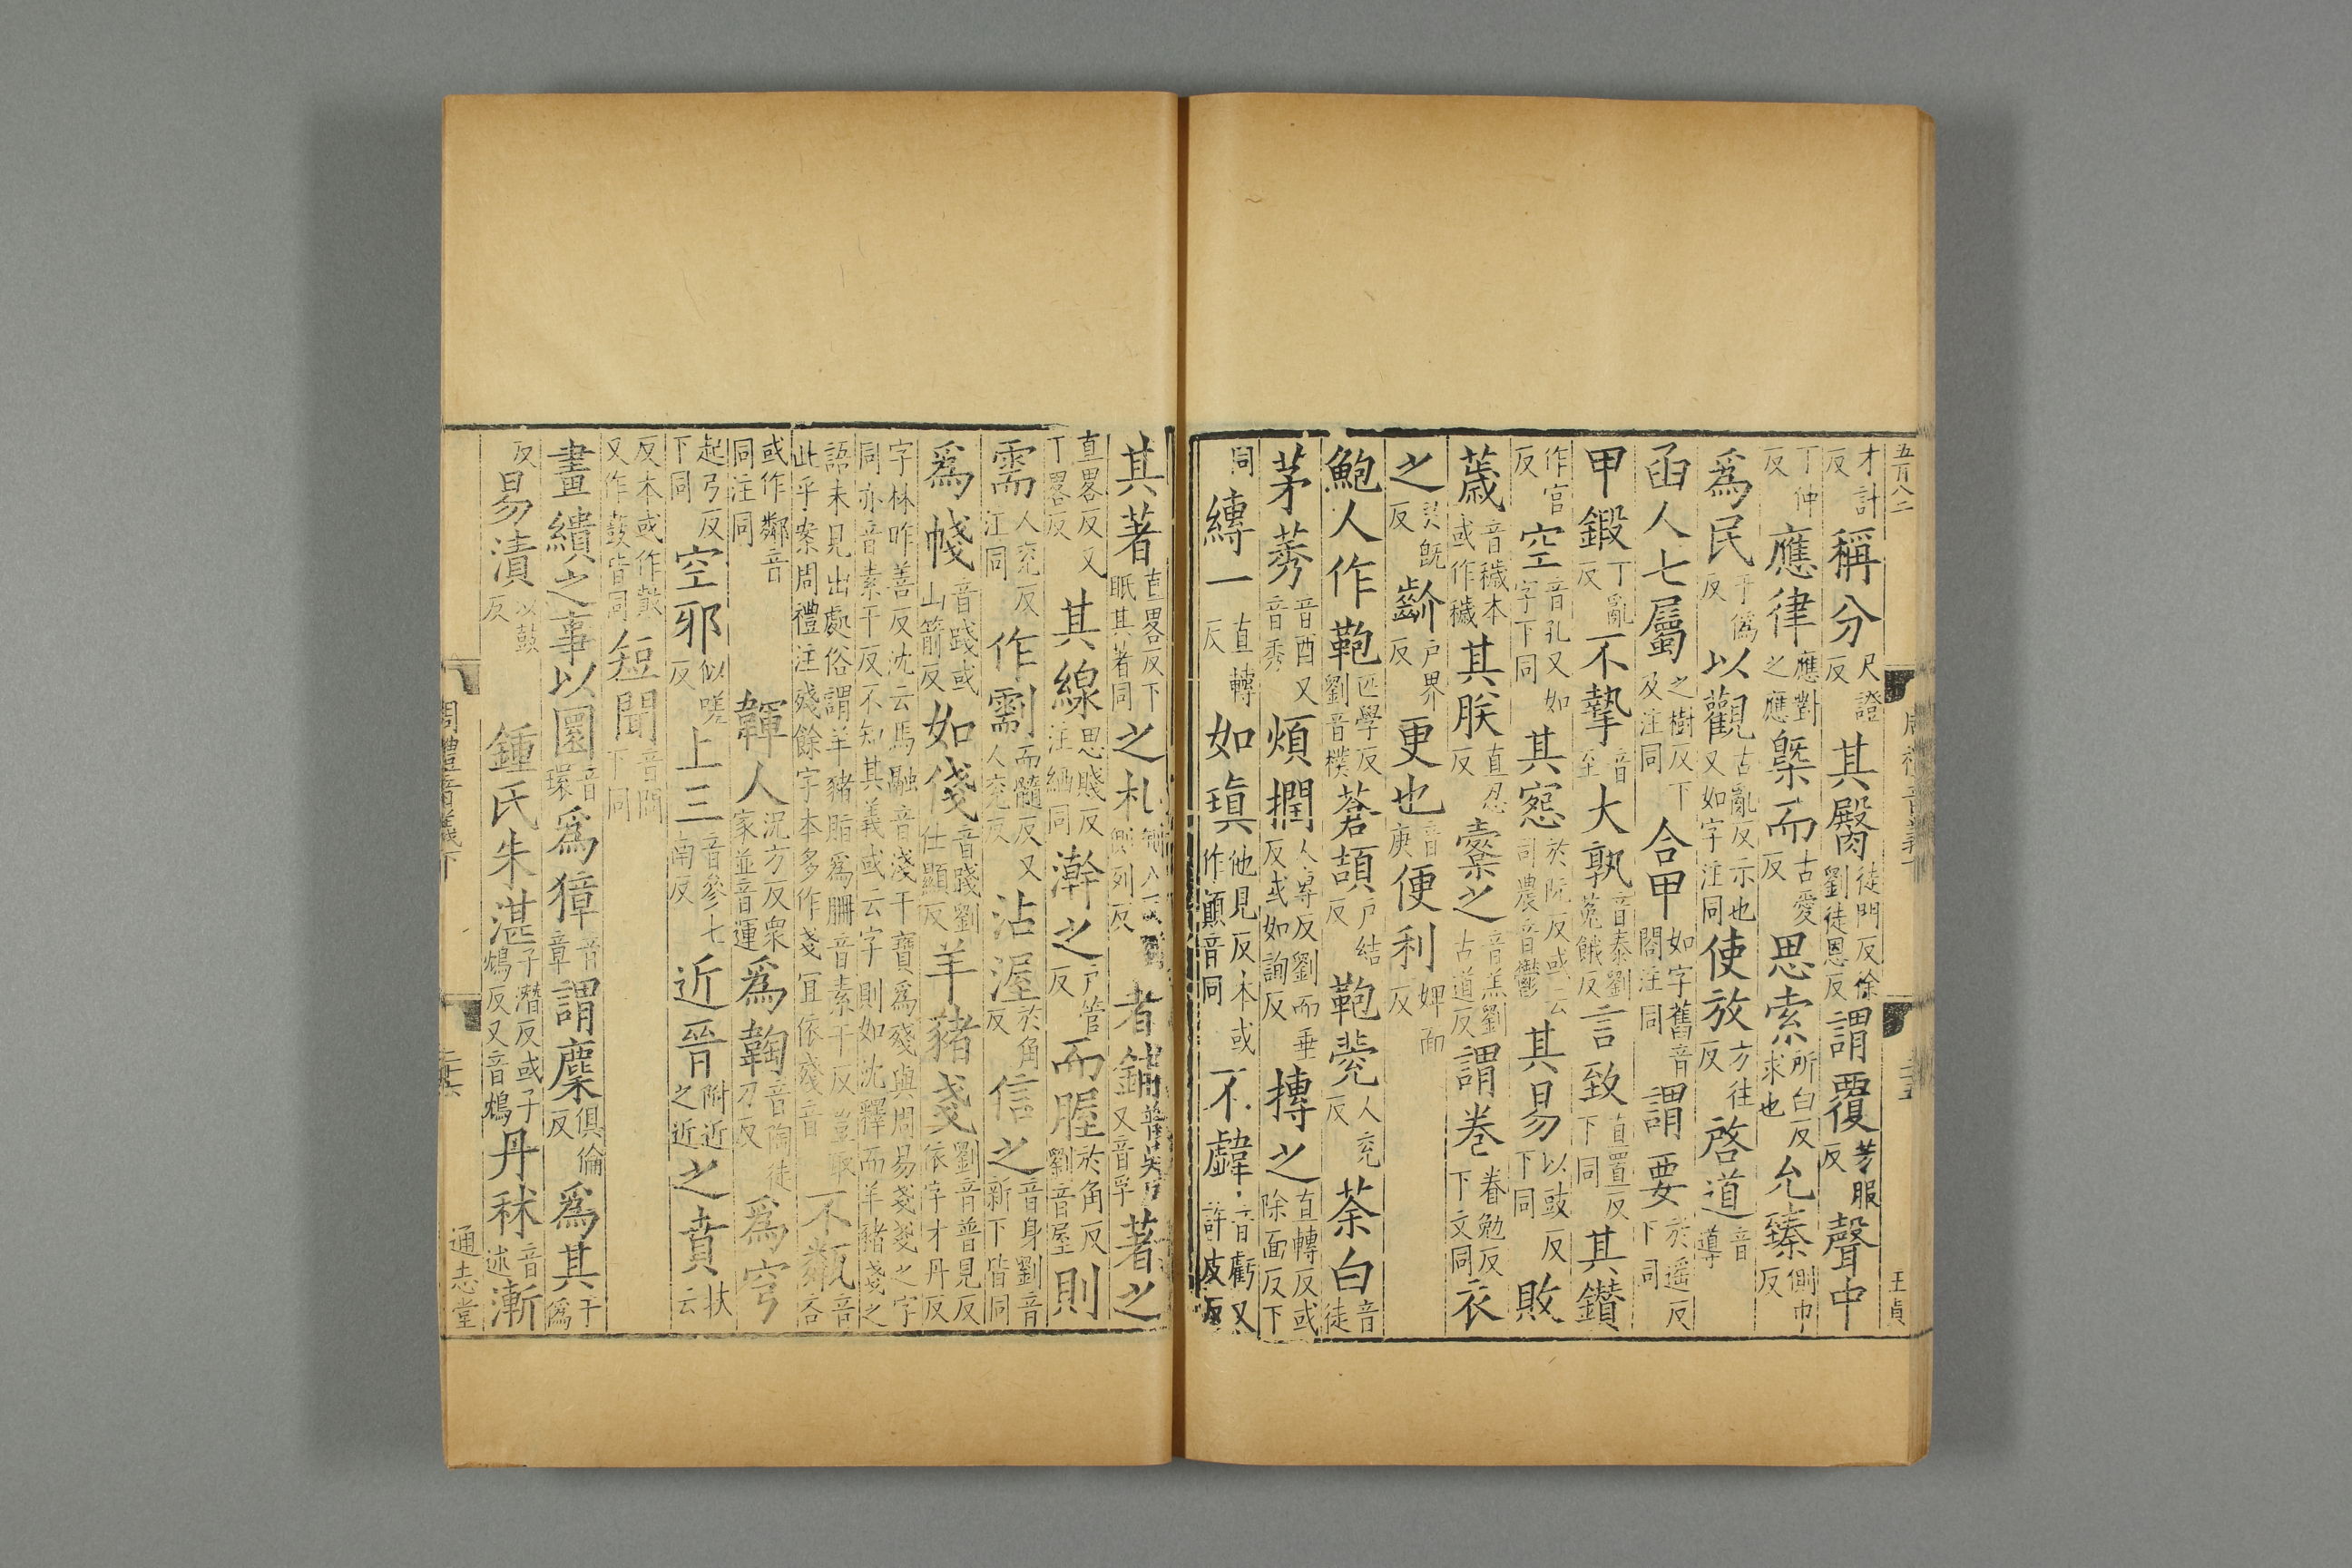 五百八二 周禮音義下 二十五 王貞
才計反 稱分尺證反 其臋徒門反徐劉徒恩反 謂覆芳服反 聲中
丁仲反 應律應對之應 㮣而古愛反 思索所白反求也 允臻側巾反
爲民于僞反 以觀古亂反示也又如字注同 使放方往反 啓道音導
函人七屬之樹反下及注同 合甲如字舊音閤注同 謂要於遥反下同
甲鍛丁亂反 不摯音至 大孰音泰劉菟餓反 言致直置反下同 其鑽
作官反 空音孔又如字下同 其窓於阮反或云司農音鬱 其易以豉反下同 敗
薉音穢本或作穢 其朕直忍反 櫜之音羔劉古道反 謂卷眷勉反下文同 衣
之於旣反 齘戸界反 更也音庚 便利婢面反
鮑人作鞄匹學反劉音樸 蒼頡戸結反 鞄㼱人兖反 荼白音徒
茅莠音酉又音秀 煩撋人專反劉而垂反或如詢反 摶之直轉反或除面反下
同 縳一直轉反 如瑱他見反本或作顚音同 不㿇音虧又許皮反
其著直畧反下眂其著同 之札側列反 者鋪普吳反又音孚 著之
直畧反又丁畧反 其線思賤反注綫同 澣之戸管反 而腛於角反劉音屋 則
需人兖反注同 作劘而髓反又人兖反 沾渥於角反 信之音身劉音新下皆同
爲帴音踐或山箭反 如俴音踐劉仕顯反 羊豬戔劉音普見反依字才丹反
字林昨善反沈云馬融音淺干寶爲殘與周易戔戔之字
同亦音素干反不知其義或云字則如沈釋而羊豬戔之
語未見出處俗謂羊豬脂爲䏝音素干反豈取
此乎案周禮注殘餘字本多作戔宜依殘音 不甐音吝
或作鄰音同注同 韗人況方反衆家並音運 爲鞠音陶徒刀反 爲穹
起弓反下同 空邪似嗟反 上三音參七南反 近晉附近之近 之賁扶云
反本或作鼖又作鼓皆同 短聞音問下同
畫繢之事以圜音環 爲獐音章 謂麇俱倫反 爲其于僞
反 易漬以豉反 鍾氏朱湛子潛反或子鴆反又音鴆 丹秫音述 漸
周禮音義下 二十六 通志堂